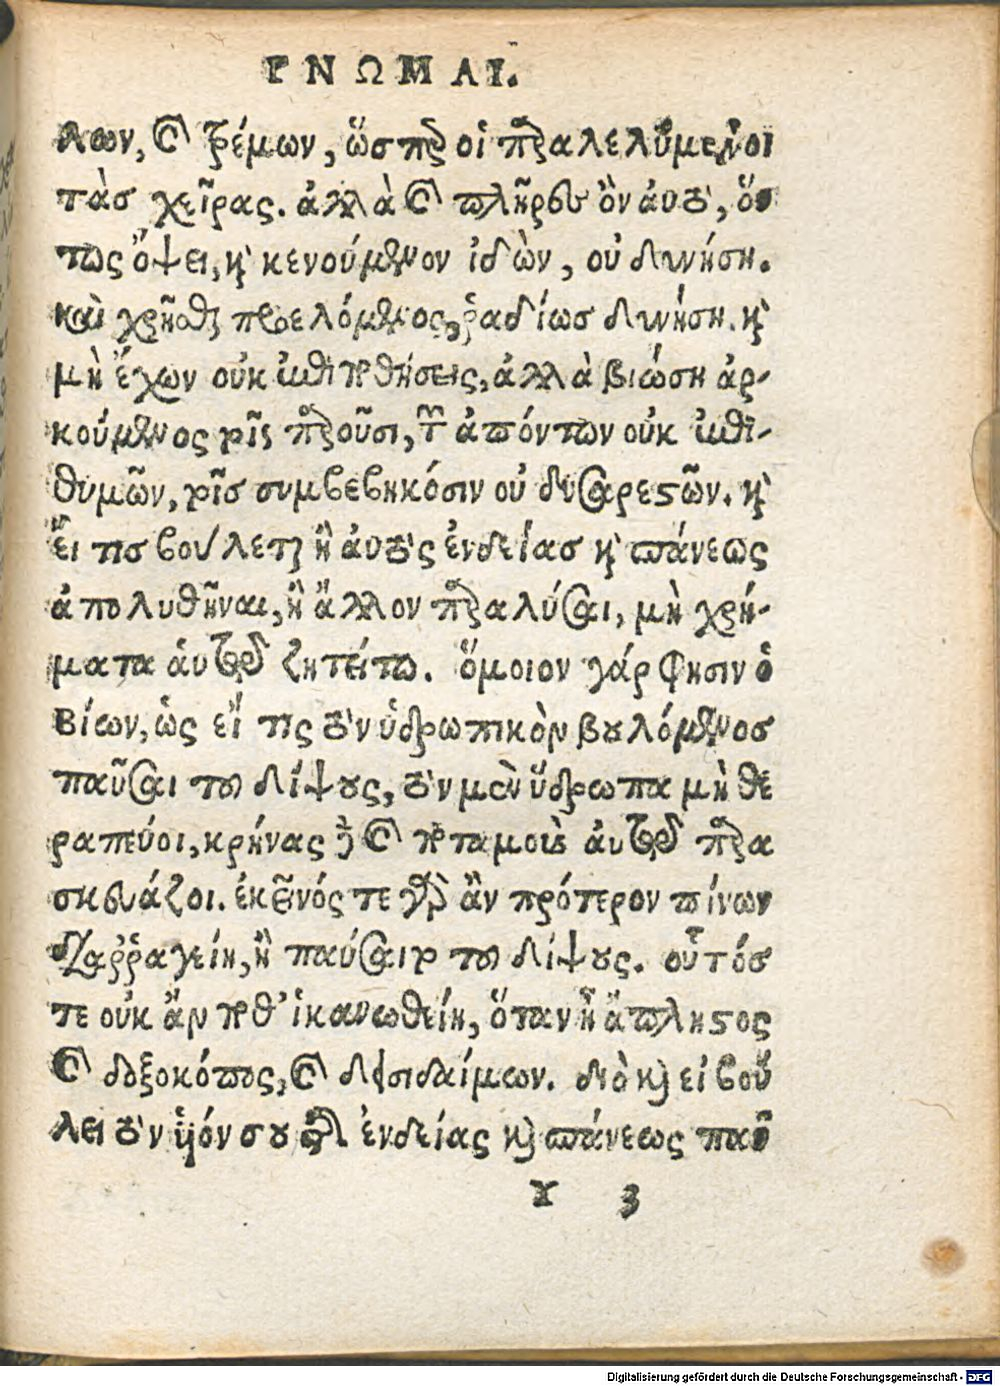 ΓΝΩΜΑΙ.
λων, καὶ τρέμων, ὥσπερ οἱ παραλελυμένοι
τὰς χεῖρας. ἀλλὰ καὶ πλήρους ὄντος αὐτοῦ, ὅτι
πως ὄψει, καὶ κενούμενον ἰδὼν, οὐ δυνήσῃ.
καὶ χρῆσθαι προελόμενος, ῥαδίως δυνήσῃ. καὶ
μὴ ἔχων οὐκ ἐπιποθήσεις, ἀλλὰ βιώσῃ ἀρ-
κούμενος τοῖς παροῦσι, τῶν ἀπόντων οὐκ ἐπι-
θυμῶν, τοῖς συμβεβηκόσιν οὐ δυσαρεστῶν. καὶ
εἴ τις βούλεται ἢ αὐτὸς ἐνδείας καὶ σπάνεως
ἀπολυθῆναι, ἢ ἄλλον παραλύσαι, μὴ χρή-
ματα αὐτῷ ζητείτω. ὅμοιον γάρ φησιν ὁ
Βίων, ὡς εἴ τις τὸν ὑδρωπικὸν βουλόμενος
παῦσαι τοῦ δίψους, τὸν μὲν ὕδρωπα μὴ θε
ραπεύοι, κρήνας δὲ καὶ ποταμοὺς αὐτῷ παρα
σκευάζοι. ἐκεῖνός τε γὰρ ἂν πρότερον πίνων
διαῤῥαγείη, ἢ παύσαιτο τοῦ δίψους. οὗτός
τε οὐκ ἄν ποθ' ἱκανωθείη, ὅταν ᾖ ἄπληστος
καὶ δοξοκόπος, καὶ δεισιδαίμων. διὸ καὶ εἰ βού
λει τὸν υἱόν σου τῆς ἐνδείας καὶ σπάνεως παῦ
γ 3
Digitalisierung gefördert durch die Deutsche Forschungsgemeinschaft - DFG